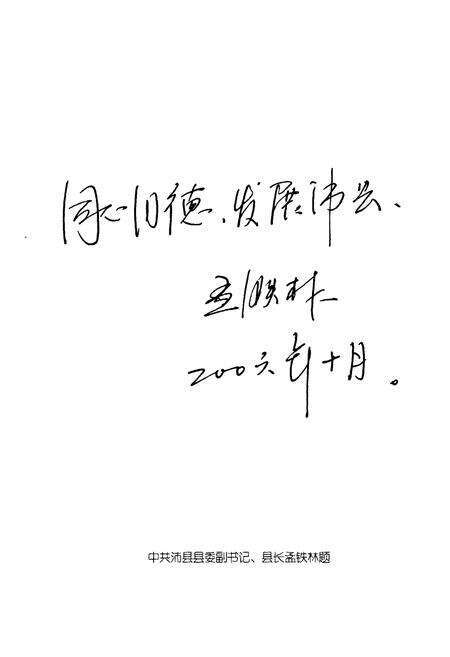 同心同德、发展沛县、
孟铁林
200六年十月。
中共沛县县委副书记、县长孟铁林题